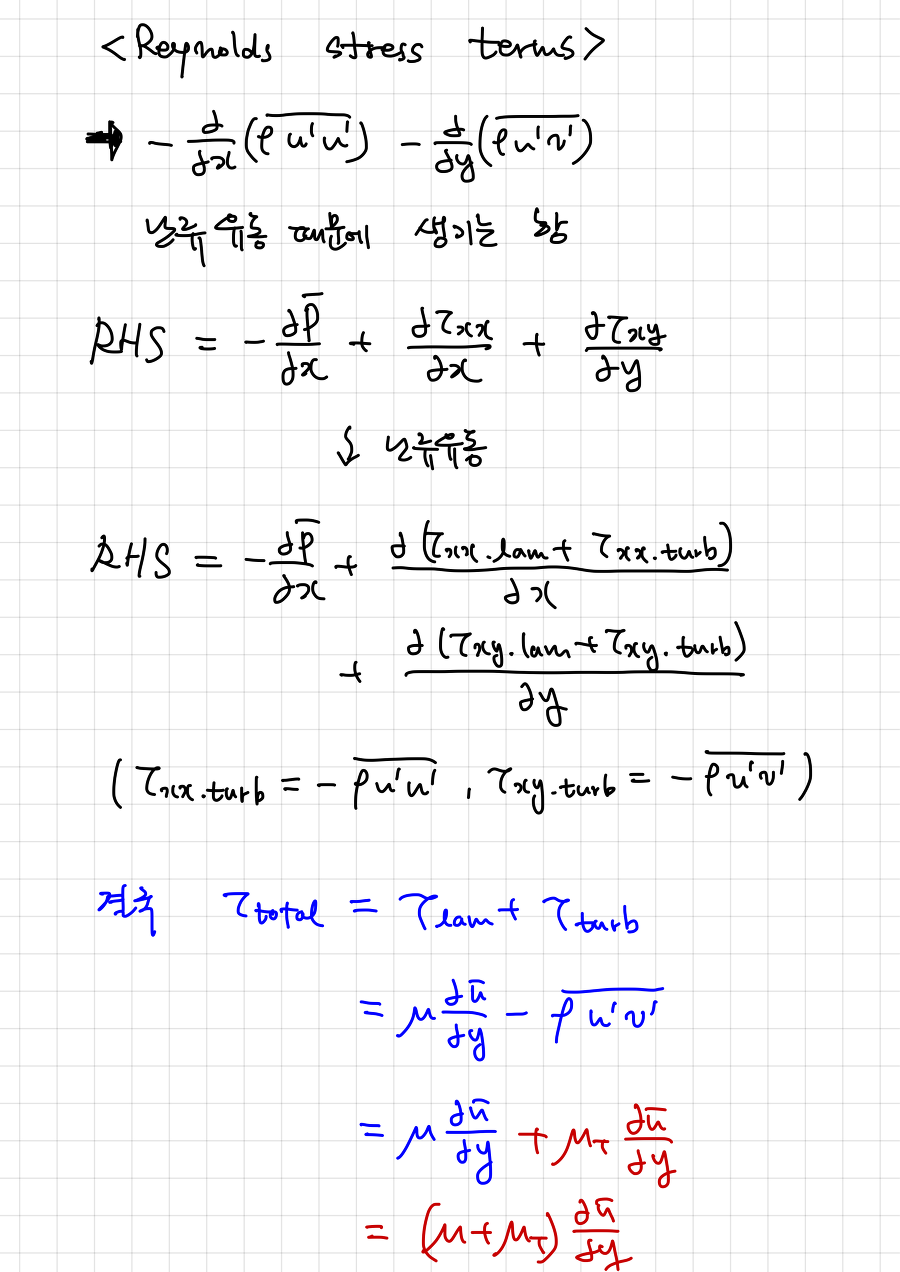 <Reynolds stress terms>
➡ - ∂/∂x (\overline{ρu'u'}) - ∂/∂y (\overline{ρu'v'})
난류 유동 때문에 생기는 항
RHS = - ∂\overline{P}/∂x + ∂τxx/∂x + ∂τxy/∂y
↓ 난류유동
RHS = - ∂\overline{P}/∂x + ∂(τxx.lam + τxx.turb)/∂x
+ ∂(τxy.lam + τxy.turb)/∂y
(τxx.turb = - \overline{ρu'u'}, τxy.turb = - \overline{ρu'v'})
결국 τtotal = τlam + τturb
= μ ∂ū/∂y - \overline{ρu'v'}
= μ ∂ū/∂y + μT ∂ū/∂y
= (μ + μT) ∂ū/∂y